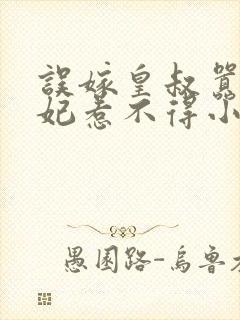 誤嫁皇叔
妃惹不得小
愚園路-烏魯